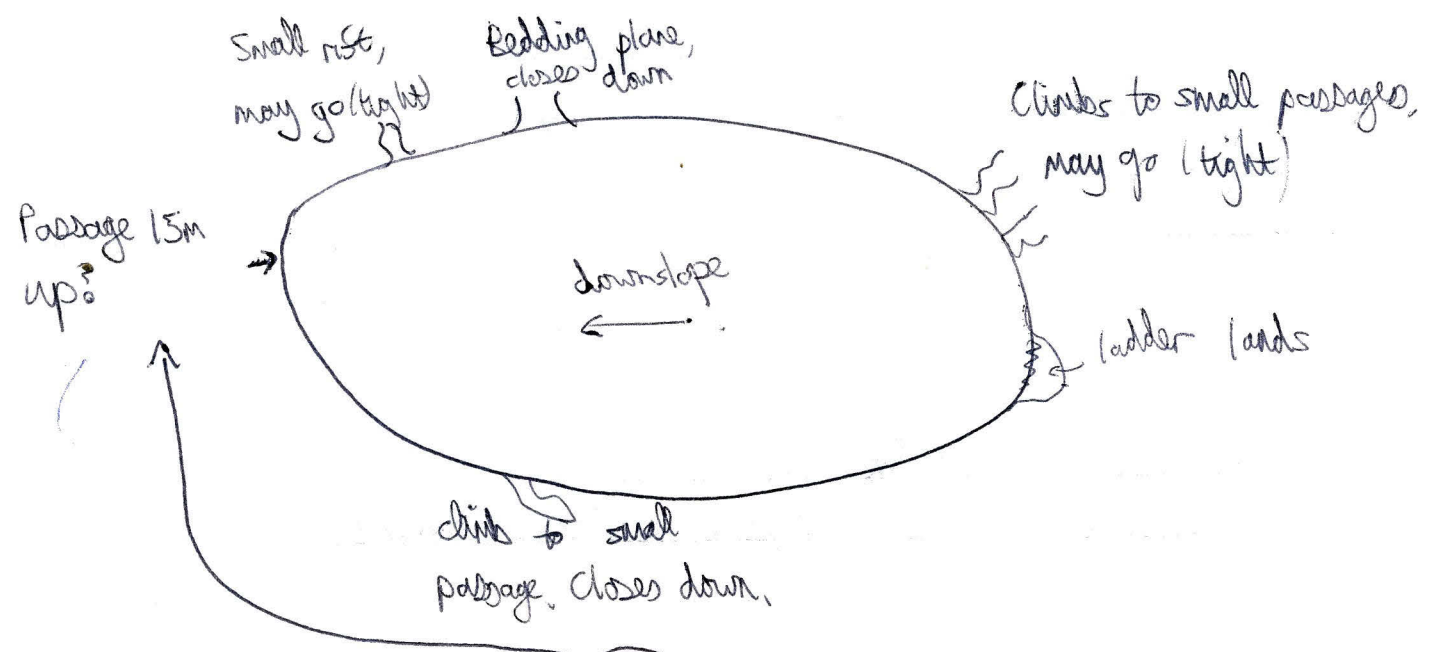 Small rift,
may go (tight)
Bedding plane,
closes down
Climbs to small passages,
may go (tight)
Passage 15m
up?
downslope
ladder lands
climb to small
passage. Closes down.